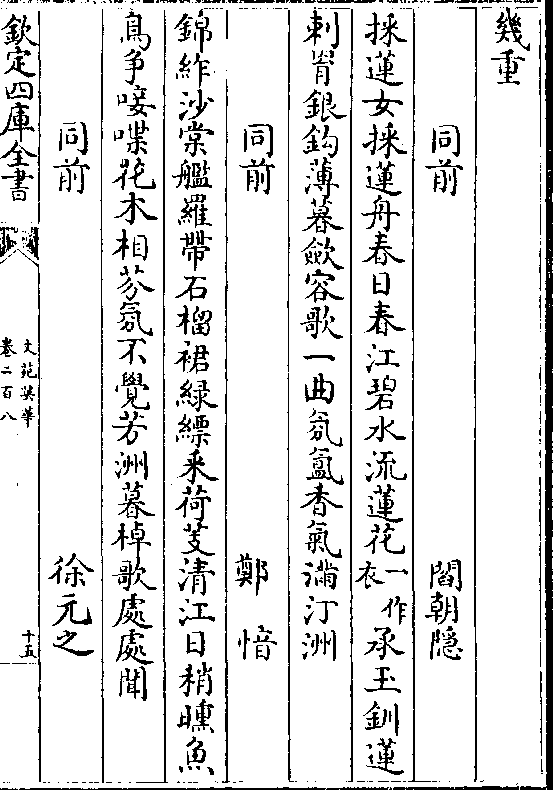 幾重
同前 閻朝隱
採蓮女採蓮舟春日春江碧水流蓮花一作衣承玉釧蓮
刺胃銀鈎薄暮歛容歌一曲氛氲香氣滿汀洲
同前 鄭愔
錦䋏沙棠艦羅帶石榴裙緑縹采荷芰清江日稍曛魚
鳥爭唼喋花木相芬氛不覺芳洲暮棹歌處處聞
同前 徐元之
欽定四庫全書 文苑英華卷二百八 十五